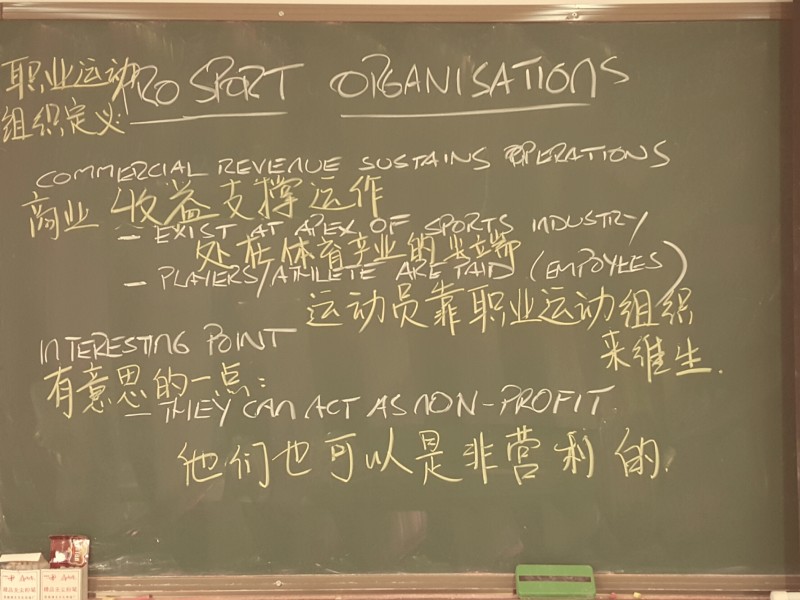 职业运动
组织定义
PRO SPORT ORGANISATIONS
COMMERCIAL REVENUE SUSTAINS OPERATIONS
商业 收益支撑运作
- EXIST AT APEX OF SPORTS INDUSTRY
处在体育产业的尖端
- PLAYERS/ATHLETE ARE PAID (EMPOYEES)
运动员靠职业运动组织
来维生.
INTERESTING POINT
有意思的一点:
- THEY CAN ACT AS NON-PROFIT.
他们也可以是非营利的.